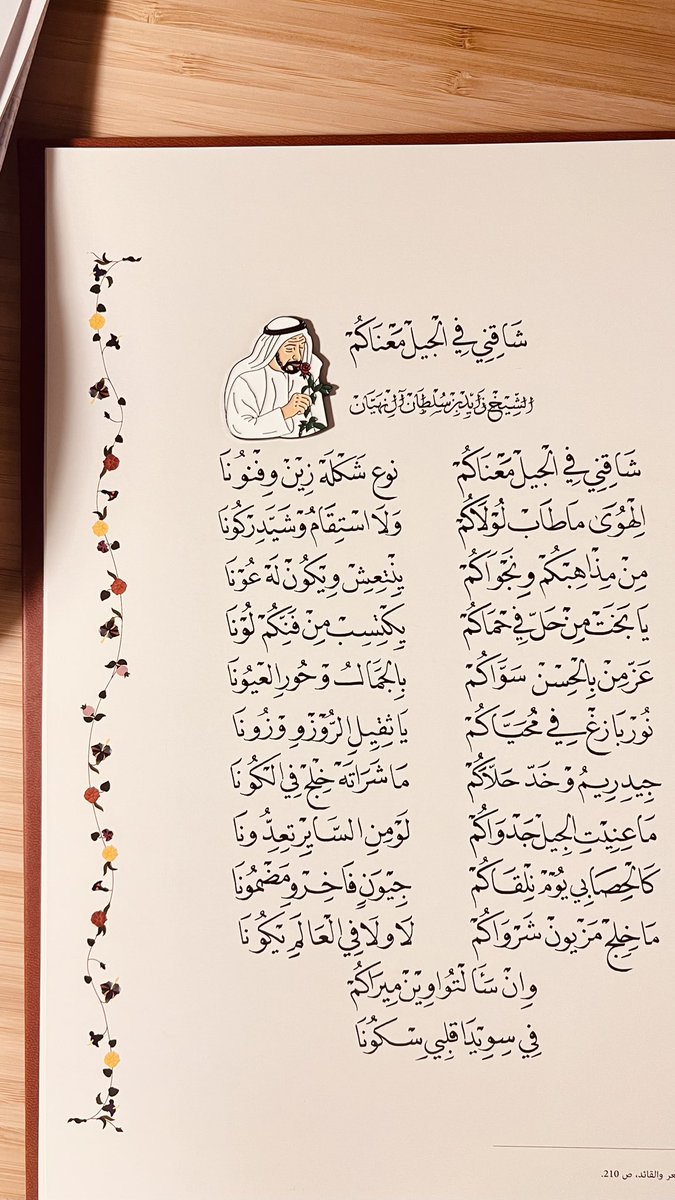 شَاقِنِي فِي الْجِيلْ مَعْنَاكُمْ
الشِّيخْ زَايِدْ بِنْ سُلْطَانْ آلْ نَهْيَانْ
شَاقِنِي فِي الْجِيلْ مَعْنَاكُمْ نوع شَكْلَهْ زِينْ وِفْنُونَا
الْهُوَىٰ مَاطَابْ لُوْلَاكُمْ وَلَا اسْتِقَامْ وْشَيَّدِرْكُونَا
مِنْ مِذَاهِبْكُمْ وِنَجْوَاكُمْ يِنْتِعِشْ وِيْكُونْ لَهْ عُوْنَا
يَا بَخَتْ مِنْ حَلّ فِي حْمَاكُمْ يِكْتِسِبْ مِنْ فَنِّكُمْ لُوْنَا
عَزّ مِنْ بِالْحِسِنْ سَوَّاكُمْ بِالْجَمَالْ وْحُورِ الْعيُونَا
نُورْ بَازِغْ فِي مْحَيَّاكُمْ يَا ثِقِيلِ الرُّوْزْ وِوْزُونَا
جِيدِ رِيمْ وْخَدّ حَلَّاكُمْ مَا شَرَاتَهْ خِلْجْ فِي الْكُونَا
مَا عِنِيتِ الْجِيلْ جَدْوَاكُمْ لَوْ مِنِ السَّايِرْ تعِدُّونَا
كَالْحِصَابِي يُوْمْ نِلْقَاكُمْ جِيْوَنٍ فَاخِرْ ومَضْمُونَا
مَا خِلِجْ مَزْيُونْ شَرْوَاكُمْ لَا وَلَا فِي الْعَالَمْ يْكُونَا
وِانْ سَأَلْتُوا وِيْنْ مِيرَاكُمْ
فِي سِوِيْدَا قَلْبِي سْكُونَا
عر والقائد، ص 210.